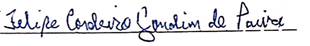 Felipe Cordeiro Gondim de Paiva